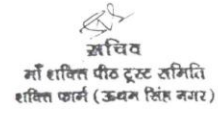 सचिव
माँ शक्ति पीठ ट्रस्ट समिति
शक्ति फार्म (ऊधम सिंह नगर)